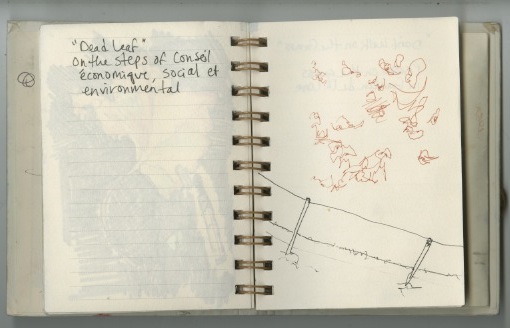 "Dead Leaf"
on the steps of Conseil
économique, social et
environmental